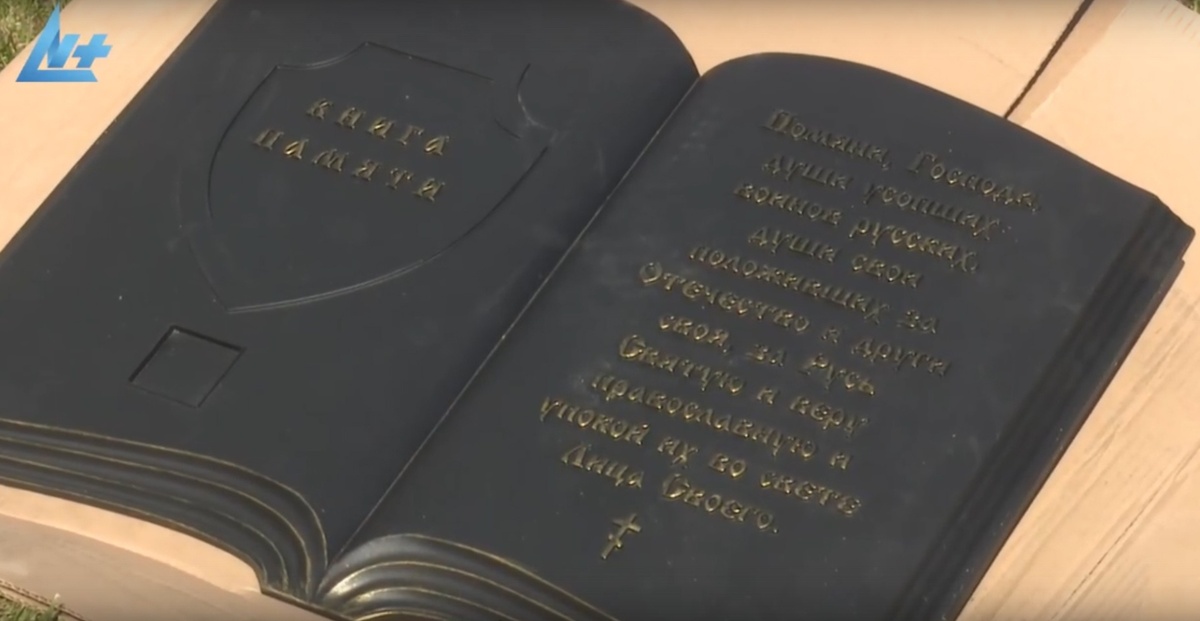 N+
КНИГА
ПАМЯТИ
Помяни, Господи,
души усопших
воинов русских,
души свои
положивших за
Отечество и други
своя, за Русь
Святую и веру
православную и
упокой их во свете
Лица Своего.